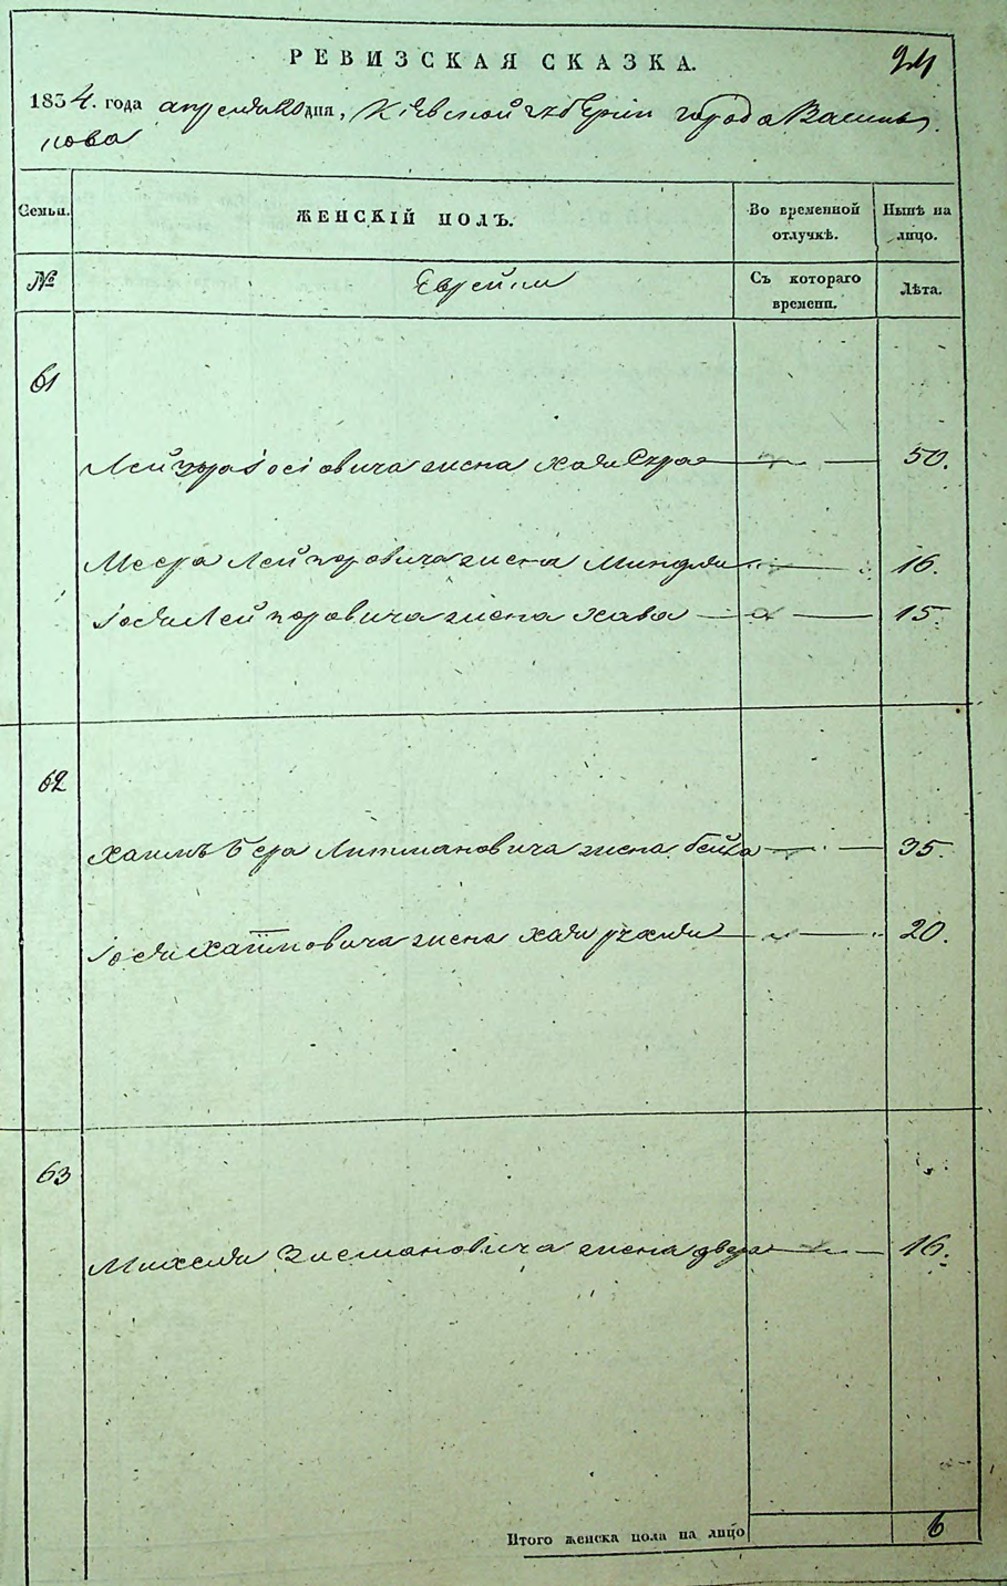 РЕВИЗСКАЯ СКАЗКА. 24
1834. года апреля 20 дня, Кіевской губерніи города Василь
кова
Семьи. ЖЕНСКІЙ ПОЛЪ. Во временной отлучкѣ. Нынѣ на лицо.
№ Еврейки Съ котораго времени. Лѣта.
61
Лейзора Іосіовича жена Хая Сура 50.
Меера Лейзоровича жена Миндля 16.
Іося Лейзоровича жена Хава 15.
62
Хаимъ Бера Литмановича жена Бейла 35.
Іося Хаимовича жена Хая 20.
63
Михеля Зисмановича жена Двера 16.
Итого женска пола на лицо 6